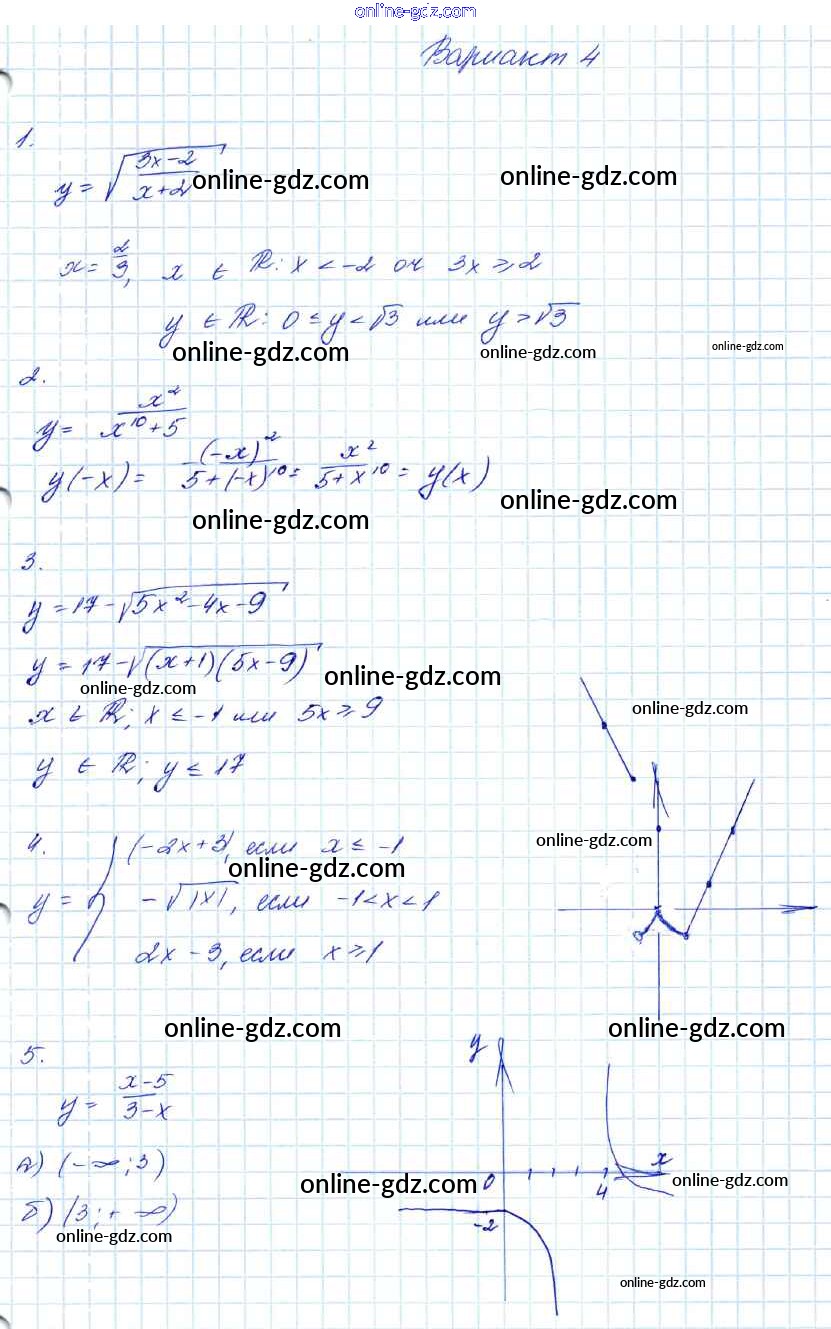 online-gdz.com
Вариант 4
1.
y = √((3x-2)/(x+2)) online-gdz.com online-gdz.com
x = 2/3, x ∈ ℝ: x < -2 or 3x ≥ 2
y ∈ ℝ: 0 ≤ y < √3 или y > √3
online-gdz.com online-gdz.com online-gdz.com
2.
y = x²/(x¹⁰+5)
y(-x) = (-x)²/(5+(-x)¹⁰) = x²/(5+x¹⁰) = y(x) online-gdz.com
online-gdz.com
3.
y = 17 - √(5x²-4x-9)
y = 17 - √((x+1)(5x-9)) online-gdz.com
online-gdz.com
x ∈ ℝ; x ≤ -1 или 5x ≥ 9 online-gdz.com
y ∈ ℝ; y ≤ 17
4.
y = { (-2x+3, если x ≤ -1 online-gdz.com
online-gdz.com
-√|x|, если -1 < x < 1
2x - 3, если x ≥ 1
online-gdz.com online-gdz.com
5.
y = (x-5)/(3-x)
а) (-∞; 3)
б) (3; +∞)
online-gdz.com
y
x
0
4
-2
online-gdz.com online-gdz.com
online-gdz.com